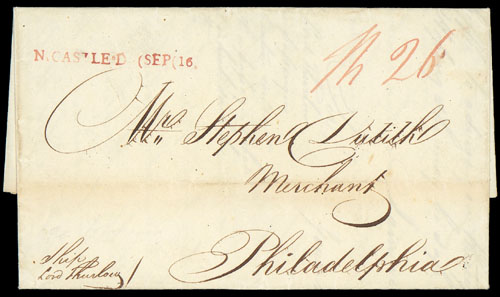 N. CASTLE.D (SEP(16.
Sh 26
Mr. Stephen Dutilh
Merchant
Philadelphia
Ship
Lord Thurlow